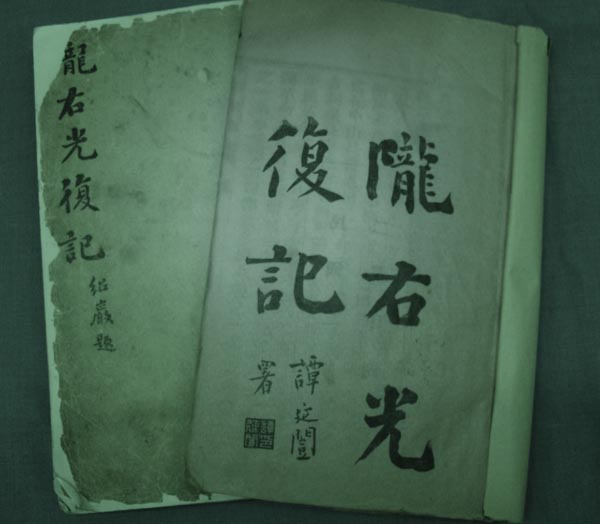 隴右光
復記
譚延闓
署
龍右光復記
紹巖題